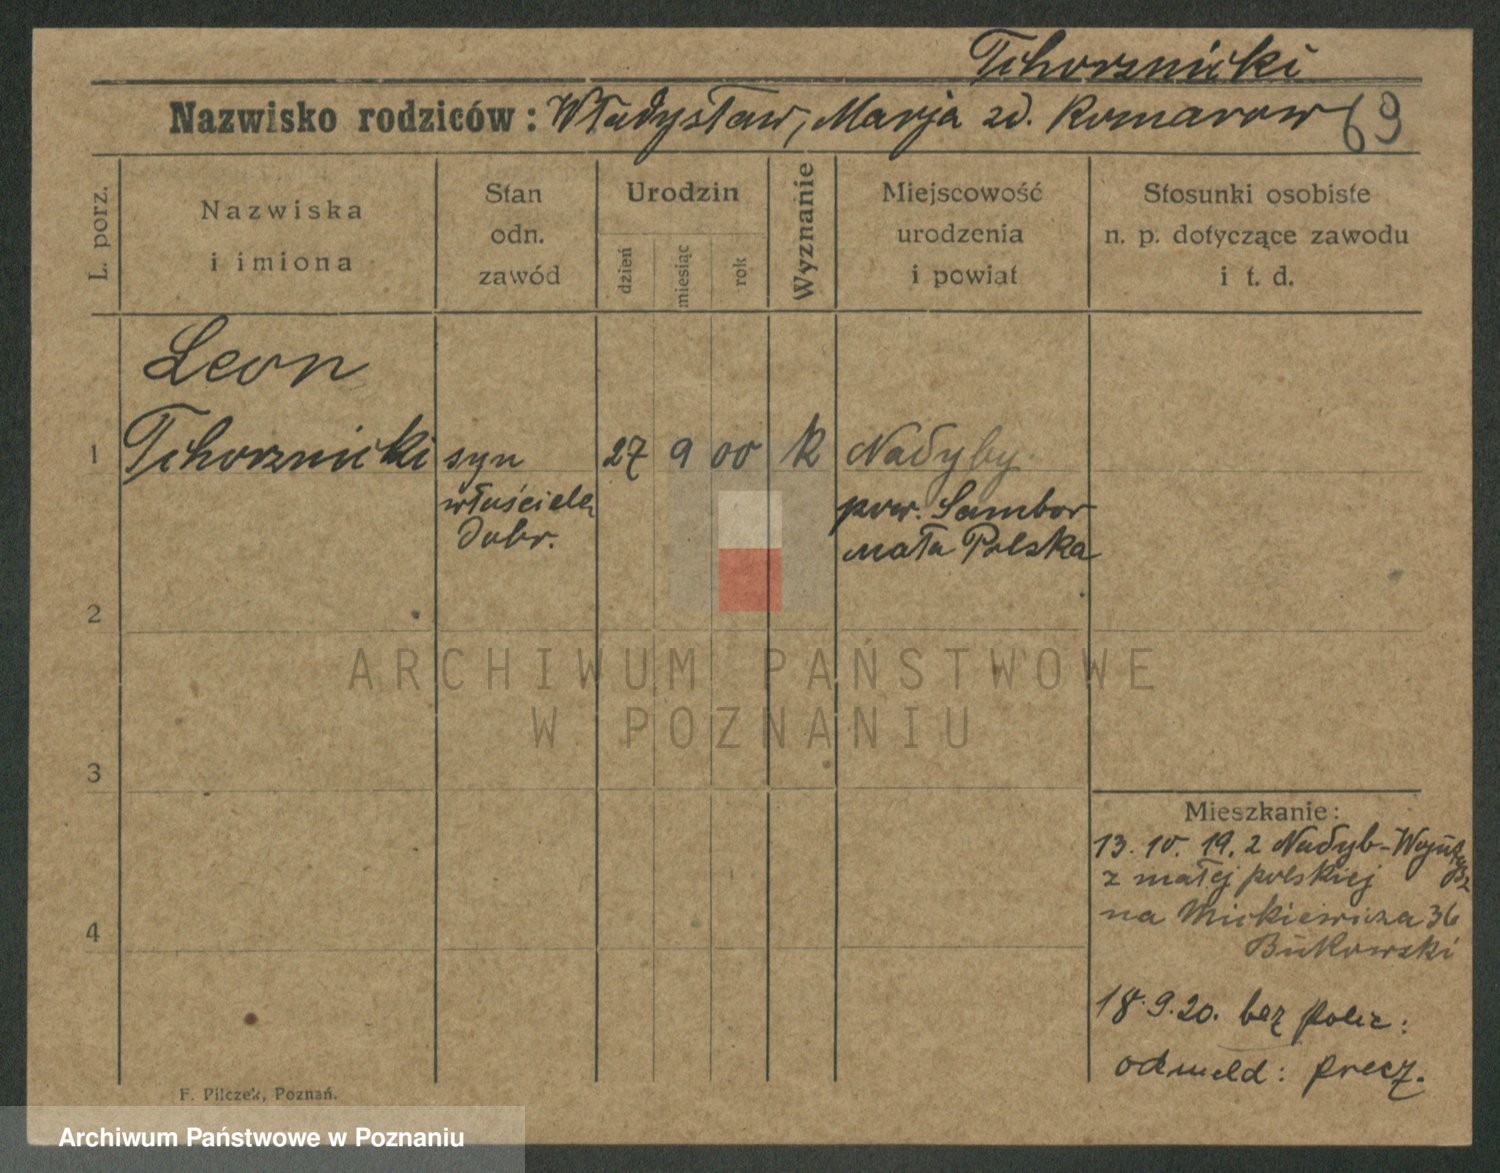 Tchorznicki
Nazwisko rodziców: Władysław, Marja zd. Komarow 69
L. porz.
Nazwiska
i imiona
Stan
odn.
zawód
Urodzin
dzień
miesiąc
rok
Wyznanie
Miejscowość
urodzenia
i powiat
Stosunki osobiste
n. p. dotyczące zawodu
i t. d.
Leon
1 Tchorznicki syn 27 9 00 k Nadyby
właściciela pow. Sambor
dobr. mała Polska
2
ARCHIWUM PAŃSTWOWE
W POZNANIU
3
Mieszkanie:
13. 10. 19. z Nadyb-
z małej polskiej
4
na Mickiewicza 36
Bukowski
18.9.20. bez policz:
odmeld: precz.
F. Pilczek, Poznań.
Archiwum Państwowe w Poznaniu